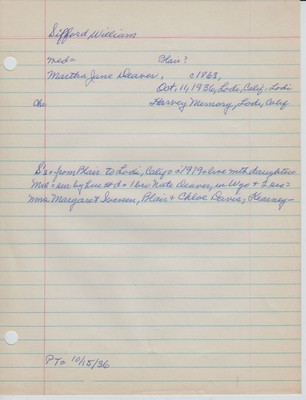 Sifford William
md= Blair?
Martha Jane Deaver, c1863,
Oct. 11, 1936, Lodi, Calif. Lodi
Ch: Harvey Memory, Lodi, Calif
D's + from Blair to Lodi, Calif c1919 + live with daughters
Md = sur by hus + d + 1 bro Nate Deaver, in Wyo + 2 sis =
Mmes Margaret Iversen, Blair + Chloe Davis, Kearney -
P To 10/15/36